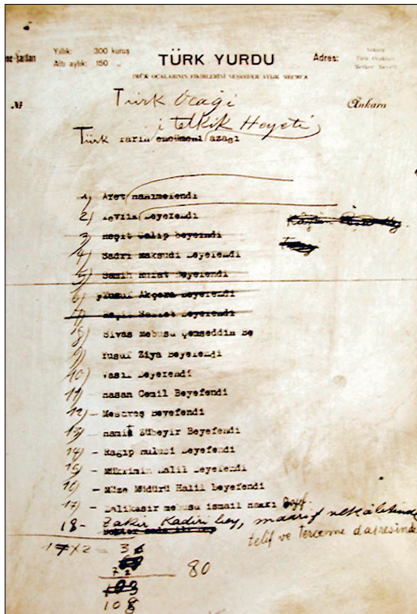 Yıllık: 300 kuruş
Altı aylık: 150
TÜRK YURDU
Adres:
Ankara
Türk Ocağı
Tetkik Heyeti
Türk tarih encümeni azası
1) Afet hanımefendi
2) Tevfik Beyefendi
3) Reşit Galip beyefendi
4) Sadri Maksudi Beyefendi
5) Samih Rifat Beyefendi
6) Yusuf Akçora Beyefendi
7) Beyefendi
8) Sivas Mebusu Şemseddin Be
9) Yusuf Ziya Beyefendi
10) Vasıf Beyefendi
11) Hasan Cemil Beyefendi
12- Mesaroş beyefendi
13) Hamit Zübeyir Beyefendi
14- Ragıp Hulusi Beyefendi
15- Mükrimin Halil Beyefendi
16- Müze Müdürü Halil beyefendi
17- Balikesir mebusu ismail hakkı Beyf.
18- Zakir Kadiri bey, maarif vekâletinde
telif ve Tercenme dairesinde
17x2 = 3
72
80
108